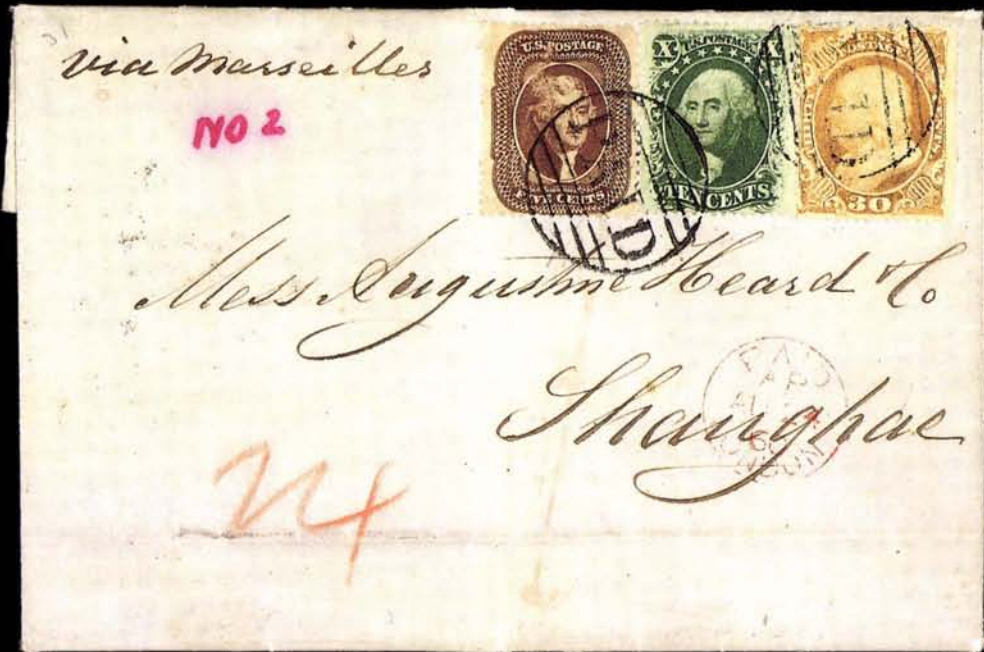 via Marseilles
NO 2
U.S. POSTAGE
FIVE CENTS
X U.S. POSTAGE X
TEN CENTS
POSTAGE
30
PAID
Mess Augustine Heard & Co
Shanghae
PAID
LONDON
24